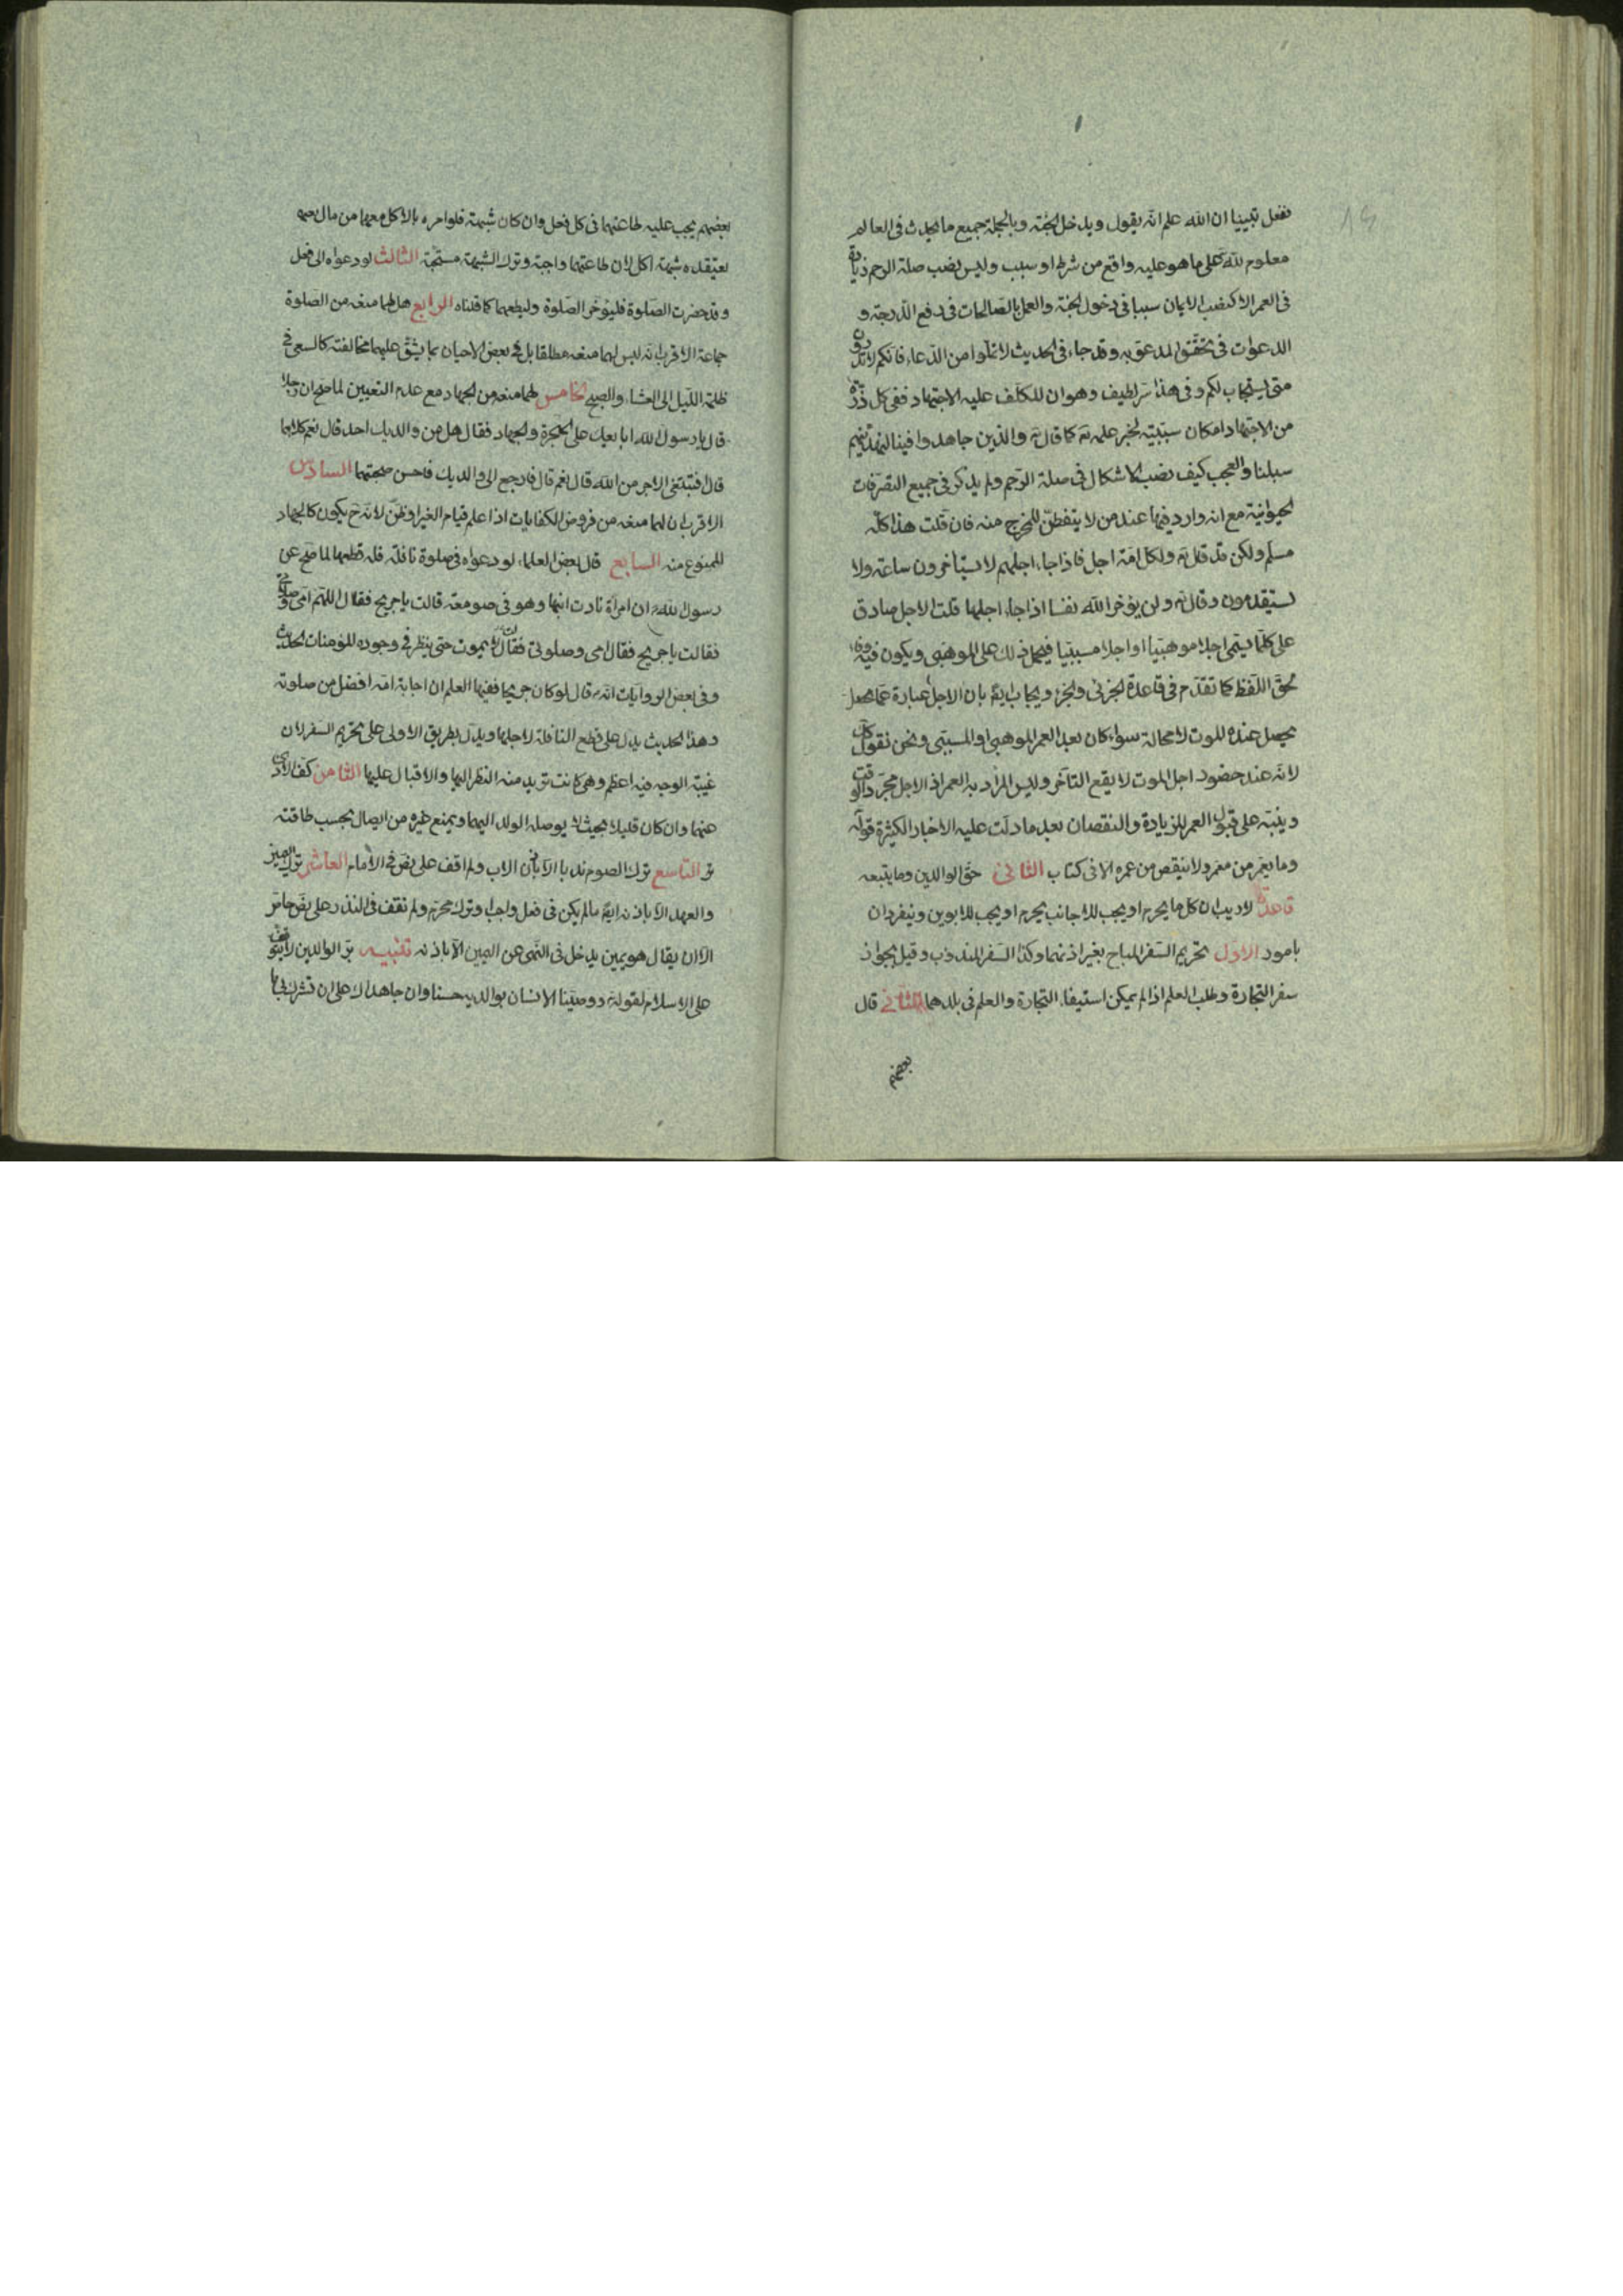 نفعل تبيينا ان الله علم انه يقول ويدخل الجنة وبالجملة جميع ما يحدث في العالم
معلوم لله تع على ما هو عليه واقع من شرط او سبب وليس نصب صلة الرحم زيادة
في العمر الا كنصب الايمان سببا في دخول الجنة والعمل بالصالحات في رفع الدرجة و
الدعوات في تحقق المدعو به وقد جاء في الحديث لا تملوا من الدعاء فانكم لا تدرون
متى يستجاب لكم وفي هذا سر لطيف وهو ان المكلف عليه الاجتهاد ففي كل ذرة
من الاجتهاد امكان سببية لخير علمه تع كما قال تع والذين جاهدوا فينا لنهدينهم
سبلنا والعجب كيف نصب الاشكال في صلة الرحم ولم يذكر في جميع التصرفات
الحيوانية مع انه وارد فيها عند من لا يتفطن للخرج منه فان قلت هذا كله
مسلم ولكن قد قال تع ولكل امة اجل فاذا جاء اجلهم لا يستأخرون ساعة ولا
يستقدمون وقال تع ولن يؤخر الله نفسا اذا جاء اجلها قلت الاجل صادق
على كلما يسمى اجلا موهبيا او اجلا مسببيا فيحمل ذلك على الموهبي ويكون فيه وفاء
لحق اللفظ كما تقدم في قاعدة الجزئي والجزء ويجاب ايضا بان الاجل عبارة عما يحصل
يحصل عنده الموت لا محالة سواء كان بعد العمر الموهبي او المسببي ونحن نقول كذلك
لانه عند حضور اجل الموت لا يقع التأخر وليس المراد به العمر اذ الاجل مجرد الوقت
وينبه على قبول العمر للزيادة والنقصان بعد ما دلت عليه الاخبار الكثيرة قوله تع
وما يعمر من معمر ولا ينقص من عمره الا في كتاب الثاني حق الوالدين وما يتبعه
قاعدة لا ريب ان كل ما يحرم او يجب للاجانب يحرم او يجب للابوين وينفردان
بامور الاول تحريم السفر المباح بغير اذنهما وكذا السفر المندوب وقيل بجواز
سفر التجارة وطلب العلم اذا لم يمكن استيفاء التجارة والعلم في بلدهما الثاني قال
بعضهم
بعضهم يجب عليه طاعتهما في كل فعل وان كان شبهة فلو امره بالاكل معهما من مال
يعتقده شبهة اكل لان طاعتهما واجبة وترك الشبهة مستحبة الثالث لو دعواه الى فعل
وقد حضرت الصلوة فليؤخر الصلوة وليطعهما كما قلناه الرابع هل لهما منعه من الصلوة
جماعة الاقرب انه ليس لهما منعه مطلقا بل في بعض الاحيان بما يشق عليهما مخالفته كالسعي في
ظلمة الليل الى العشاء والصبح الخامس لهما منعه من الجهاد مع عدم التعيين لما صح ان رجلا
قال يا رسول الله ابايعك على الهجرة والجهاد فقال هل من والديك احد قال نعم كلاهما
قال افتبتغي الاجر من الله قال نعم قال فارجع الى والديك فاحسن صحبتهما السادس
الاقرب ان لهما منعه من فروض الكفايات اذا علم قيام الغير او ظن لانه ح يكون كالجهاد
الممنوع منه السابع قال بعض العلماء لو دعواه في صلوة نافلة فله قطعها لما صح عن
رسول الله ص ان امرأة نادت ابنها وهو في صومعة قالت يا جريح فقال اللهم امي وصلوتي
فقالت يا جريح فقال امي وصلوتي فقال لا يموت حتى ينظر في وجوده المؤمنات الحديث
وفي بعض الروايات انه ص قال لو كان جريحا فقيها العلم ان اجابة امه افضل من صلوته
وهذا الحديث يدل على قطع النافلة لاجلها ويدل بطريق الاولى على تحريم السفر لان
غيبة الوجه فيه اعظم وهي كانت تريد منه النظر اليها والاقبال عليها الثامن كف الاذى
عنهما وان كان قليلا بحيث لا يوصله الولد اليهما ويمنع غيره من ايصاله بحسب طاقته
التاسع ترك الصوم ندبا الا باذن الاب ولم اقف على نص في الام العاشر ترك اليمين
والعهد الا باذنه ايضا ما لم يكن في فعل واجب او ترك محرم ولم نقف في النذر على نص خاص
الا ان يقال هو يمين يدخل في النهي عن اليمين الا باذنه تنبيه بر الوالدين لا يتوقف
على الاسلام لقوله تع ووصينا الانسان بوالديه حسنا وان جاهداك على ان تشرك بي ما